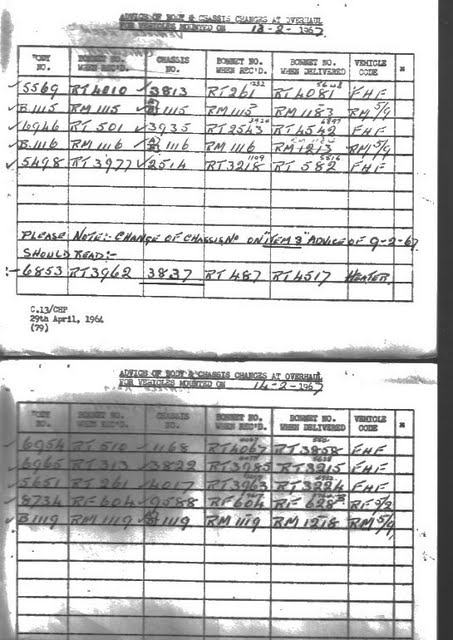 ADVICE OF BODY & CHASSIS CHANGES AT OVERHAUL
FOR VEHICLES MOUNTED ON 13-2-1967
BODY NO. BONNET NO. WHEN REC'D. CHASSIS NO. BONNET NO. WHEN REC'D. BONNET NO. WHEN DELIVERED VEHICLE CODE *
5569 RT4010 3813 RT261 RT4081 FHF
B.1115 RM1115 1115 RM1115 RM1183 RM5/9
6946 RT501 3935 RT2543 RT4542 FHF
B.1116 RM1116 1116 RM1116 RM1213 RM5/9
5498 RT3977 2514 RT3218 RT582 FHF
PLEASE NOTE:- CHANGE OF CHASSIS No ON "ITEM 3" ADVICE OF 9-2-67
SHOULD READ:-
:- 6853 RT3962 3837 RT487 RT4517 HEATER
C.13/CHP
29th April, 1964
(79)
ADVICE OF BODY & CHASSIS CHANGES AT OVERHAUL
FOR VEHICLES MOUNTED ON 14-2-1967
BODY NO. BONNET NO. WHEN REC'D. CHASSIS NO. BONNET NO. WHEN REC'D. BONNET NO. WHEN DELIVERED VEHICLE CODE *
6954 RT510 1168 RT4067 RT3858 FHF
6965 RT313 3822 RT3985 RT3215 FHF
5651 RT261 4017 RT3963 RT3224 FHF
8734 RF604 9588 RF604 RF628 RF9/2
B1119 RM1119 1119 RM1119 RM1218 RM5/9